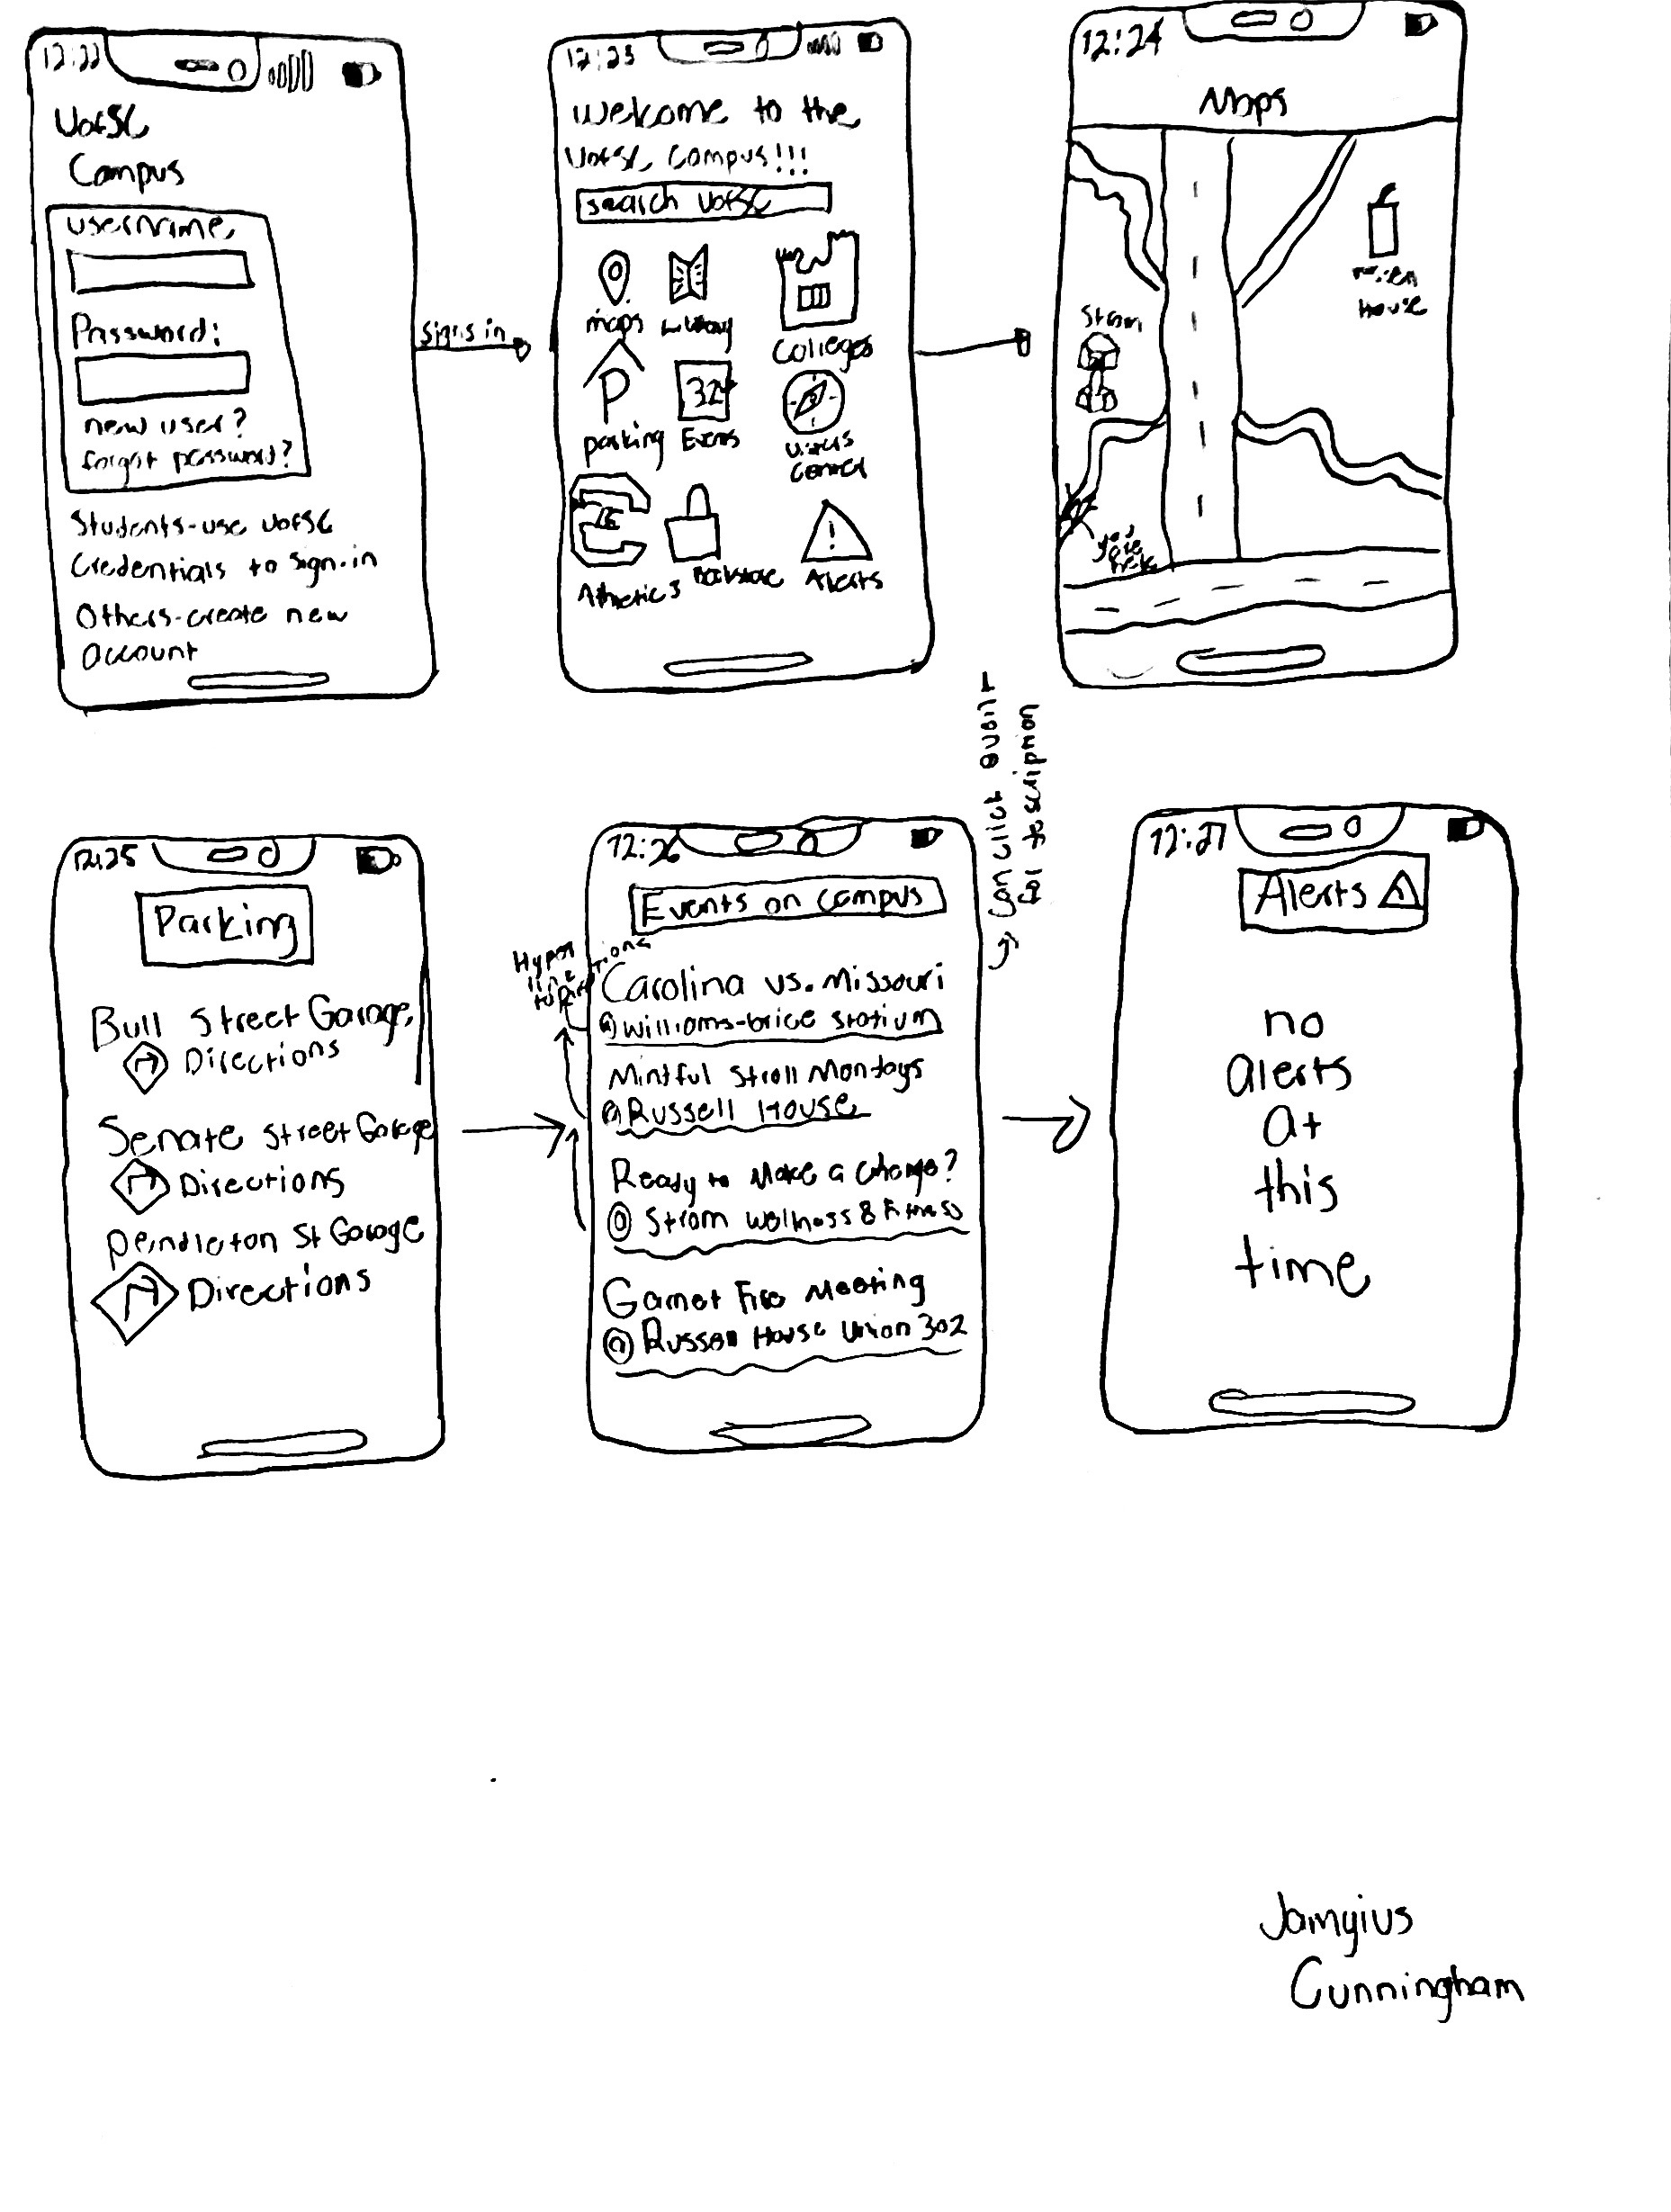 12:22
UofSC
Campus
username
Password:
new user?
forgot password?
Students-use UofSC
Credentials to sign-in
Others-create new
account
signs in
12:23
Welcome to the
UofSC Campus!!!
search UofSC
maps
Colleges
P
32
parking
Events
Athletics
Bookstore
!
Alerts
12:24
Maps
Strom
House
you
are
here
12:25
Parking
Bull Street Garage
Directions
Senate Street Garage
Directions
Pendleton St Garage
Directions
12:26
Events on campus
Carolina vs. Missouri
@ Williams-brice Statium
Mintful Stroll Montays
@ Russell House
Ready to Make a Change?
@ Strom Wellness & Fitness
Garnet Fire Meeting
@ Russell House Union 302
can click event
for tescription
12:27
Alerts
no
alerts
at
this
time
Jamyius
Cunningham